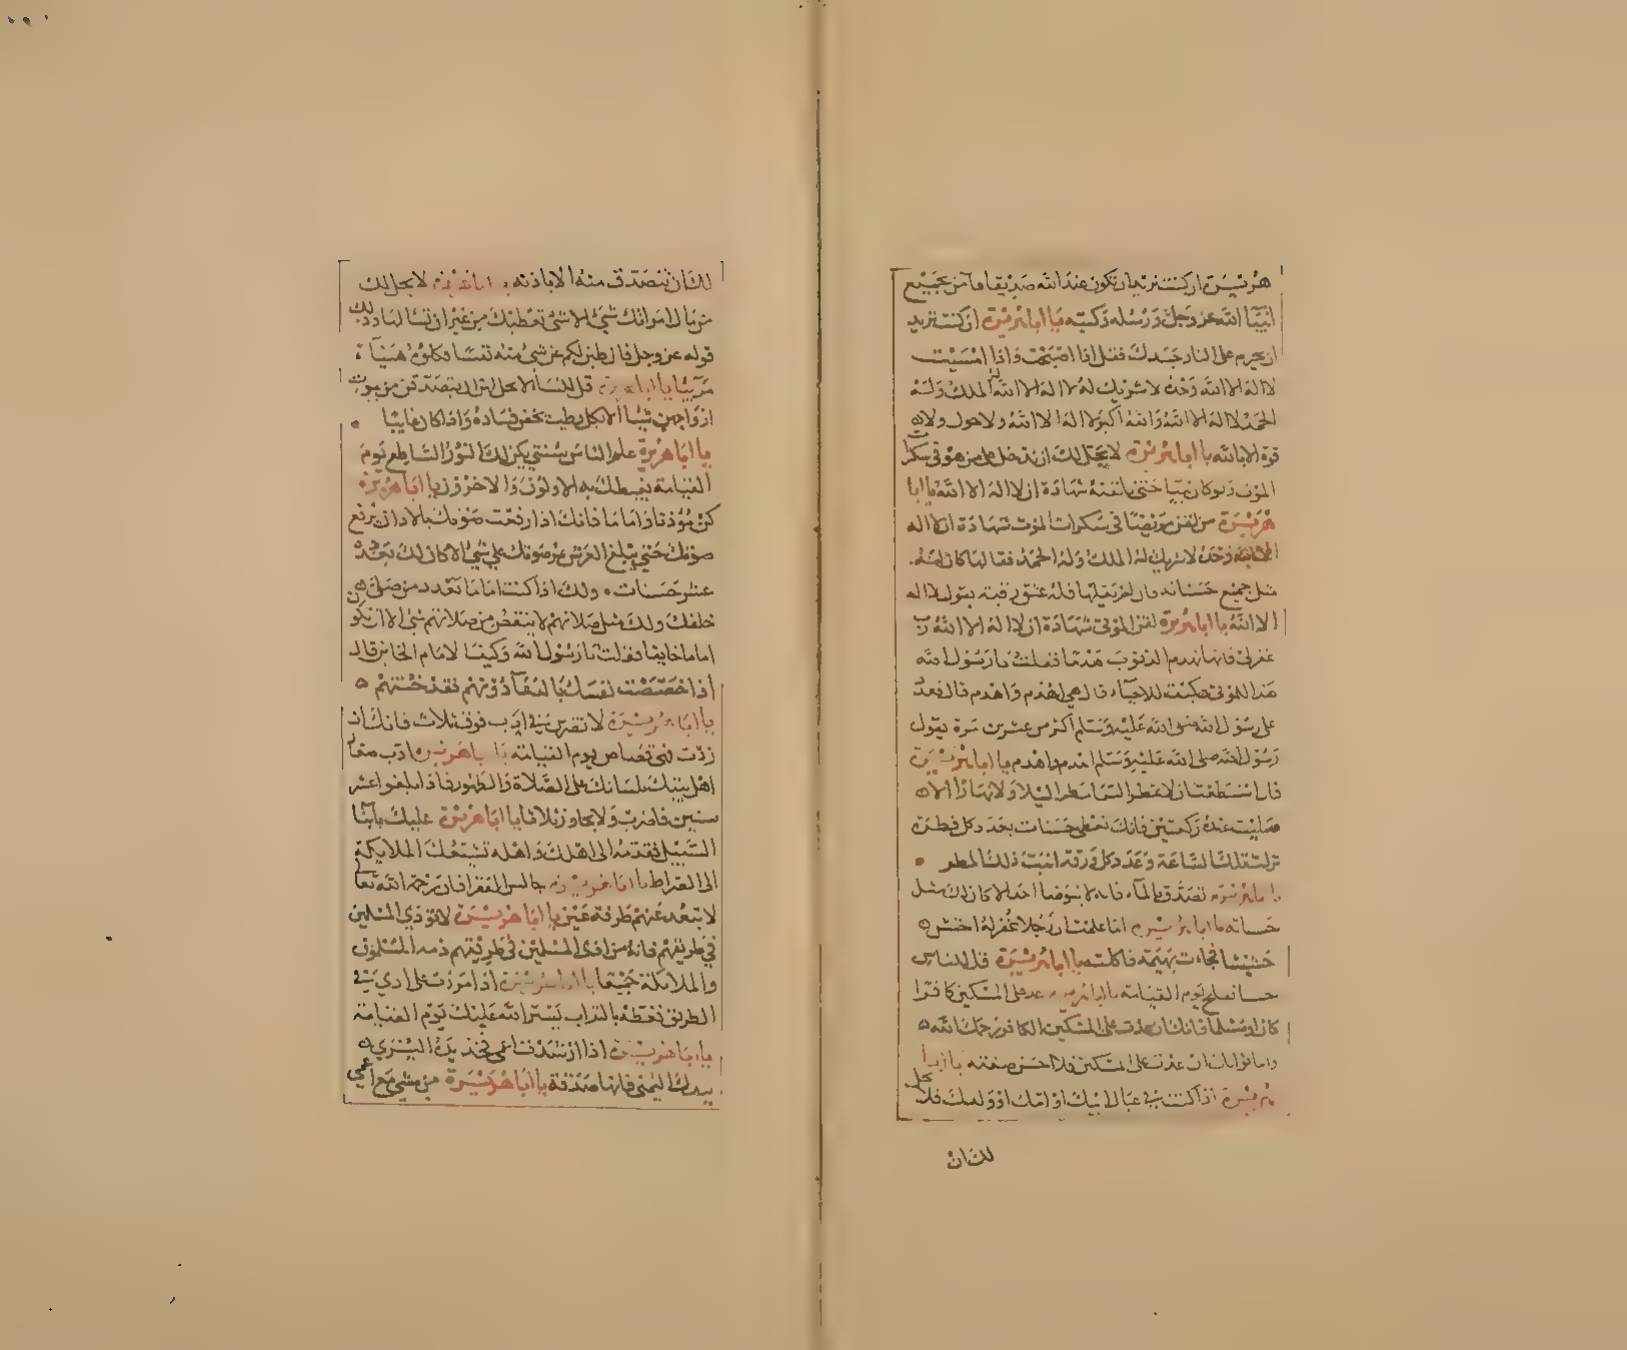 هريرة ان كنت تريد ان تكون عند الله صديقا فآمن بجميع
انبيا الله عز وجل ورسله وكتبه يا ابا هريرة ان كنت تريد
ان يحرم على النار جسدك فقل اذا اصبحت واذا امسيت
لا اله الا الله وحده لا شريك له لا اله الا الله له الملك وله
الحمد لا اله الا الله والله اكبر لا اله الا الله ولا حول ولا
قوة الا بالله يا ابا هريرة لا يحل لك ان تدخل على من هو في سكرات
الموت ولو كان نبيا حتى تلقنه شهادة ان لا اله الا الله يا ابا
هريرة من لقن مريضا في سكرات الموت شهادة ان لا اله
الا الله وحده لا شريك له الملك وله الحمد فقالها كان له
مثل جميع حسناته فان لم يقلها فله عتق رقبة بقول لا اله
الا الله يا ابا هريرة لقن الموتى شهادة ان لا اله الا الله رب
غفر لي فانها تهدم الذنوب هدما فقلت يا رسول الله
هذا للموتى فكيف للاحياء قال هي اهدم واهدم قال فعد
على رسول الله صلى الله عليه وسلم اكثر من عشرين مرة يقول
رسول الله صلى الله عليه وسلم اهدم واهدم يا ابا هريرة
فان استطعت ان لا تمطر السما مطر الليلا ولا نهارا الا
صليت عنده ركعتين فانك تعطى حسنات بعدد كل قطرة
نزلت تلك الساعة وعدد كل ورقة انبت ذلك المطر
يا ابا هريرة تصدق بالماء فانه لا يتوضا احد الا كان لك مثل
حسناته يا ابا هريرة اما علمت ان رجلا غفر له احتش
حشيشا فجاءت بهيمة فاكلته يا ابا هريرة قل للناس
حسنا تفلح يوم القيامة يا ابا هريرة عد على المسكين كافرا
كان او مسلما فانك ان عدت على المسكين الكافر رحمك الله
ان عدت على المسكين فلا احسن صفته يا ابا
هريرة اذا كنت في عيال ابيك او امك او ولدك فلا يحل
لك ان
لك ان تتصدق منه الا باذنه يا ابا هريرة لا يحل لك
من مال امراتك شيئ الا شئ تعطيك من غير ان تسالها وذلك
قوله عز وجل فان طبن لكم عن شئ منه نفسا فكلوه هنيئا
مريئا يا ابا هريرة قل للنسا لا يحل لهن ان يتصدقن من بيوت
ازواجهن شيئا الا بكل رطب تخفن فساده واذا كان غايبا
يا ابا هريرة علم الناس سنتي يكن لك النور الساطع يوم
القيامة يغبطك به الاولون والاخرون يا ابا هريرة
كن مؤذنا او اماما فانك اذا رفعت صوتك بالاذان يرفع
صوتك حتى يبلغ العرش عن صوتك على شئ الا كان لك بعدده
عشر حسنات ولك اذا كنت اماما بعدد من صلى
خلفك ولك مثل صلاتهم لا ينقص من صلاتهم شئ الا ان تكون
اماما خاينا فقلت يا رسول الله وكيف الامام الخاين قال
اذا خصصت نفسك بالدعاء دونهم فقد خنتهم
يا ابا هريرة لا تضربن في ادب فوق ثلاث فانك ان
زدت فهي قصاص يوم القيامة يا ابا هريرة ادب صغار
اهل بيتك بلسانك على الصلاة والطهور فاذا بلغوا عشر
سنين فاضرب ولا تجاوز ثلاثا يا ابا هريرة عليك بابنا
السبيل فقدمه الى اهلك واهله تشيعك الملايكة
الى الصراط يا ابا هريرة جالس الفقرا فان رحمة الله تعالى
لا تبعد عنهم طرفة عين يا ابا هريرة لا توذي المسلمين
في طريقهم فانه من اذى المسلمين في طريقهم ذمه المسلمون
والملائكة جميعا يا ابا هريرة اذا مررت على اذى في
الطريق فغطه بالتراب يستر الله عليك يوم القيامة
يا ابا هريرة اذا ارشدت اعمى فخذ يده اليسرى
بيدك اليمنى فانها صدقة يا ابا هريرة من مشى مع اعمى